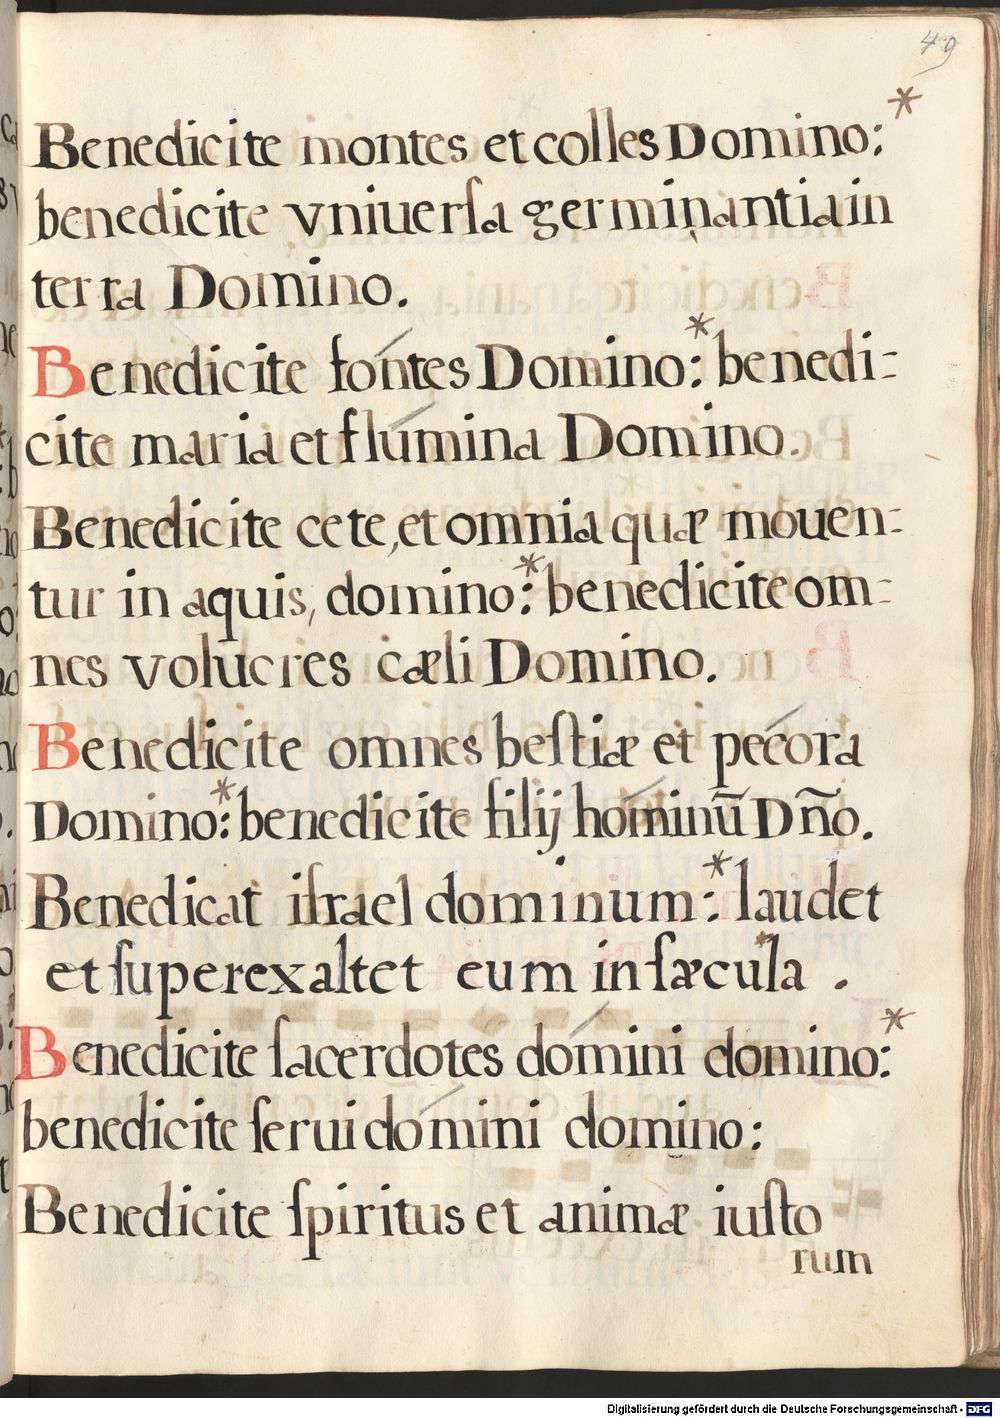 49
Benedicite montes et colles Domino: *
benedicite vniuerſa germinantia in
terra Domino.
Benedicite fontes Domino: * benedi-
cite maria et flumina Domino.
Benedicite cete, et omnia quæ mouen-
tur in aquis, domino: * benedicite om-
nes volucres cæli Domino.
Benedicite omnes beſtiæ et pecora
Domino: * benedicite filij hominũ Dño.
Benedicat iſrael dominum: * laudet
et ſuperexaltet eum in ſæcula .
Benedicite ſacerdotes domini domino: *
benedicite ſerui domini domino:
Benedicite ſpiritus et animæ iuſto
rum
Digitalisierung gefördert durch die Deutsche Forschungsgemeinschaft - DFG